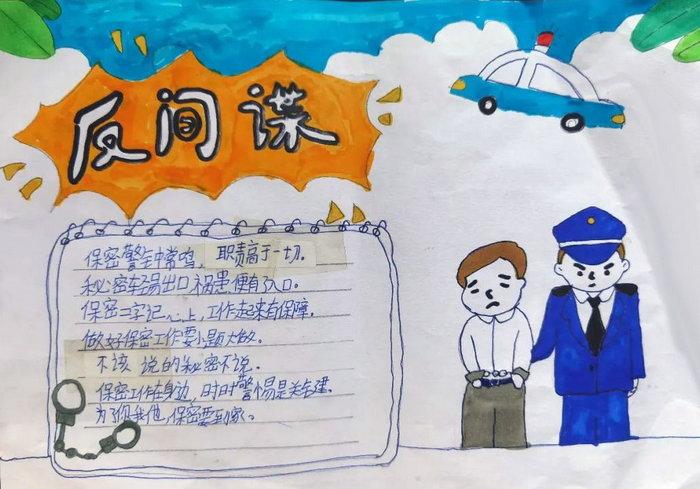 反间谍
保密警钟常鸣，职责高于一切。
秘密轻易出口祸患便有入口。
保密二字记心上，工作起来有保障。
做好保密工作要小题大做。
不该说的秘密不说。
保密工作在身边，时时警惕是关键。
为了你我他，保密要到家。